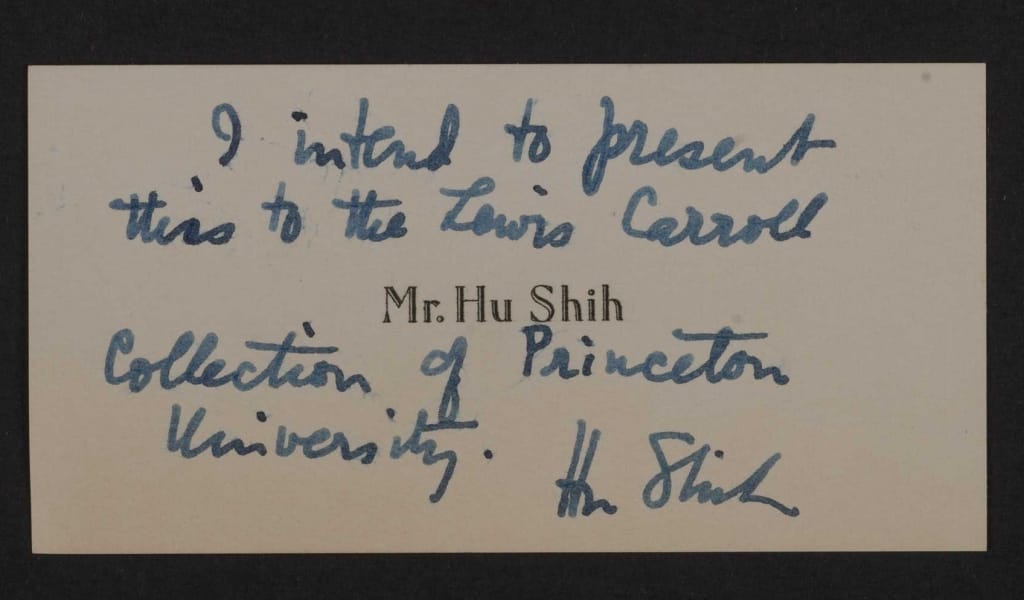 I intend to present
this to the Lewis Carroll
Mr. Hu Shih
Collection of Princeton
University.
Hu Shih